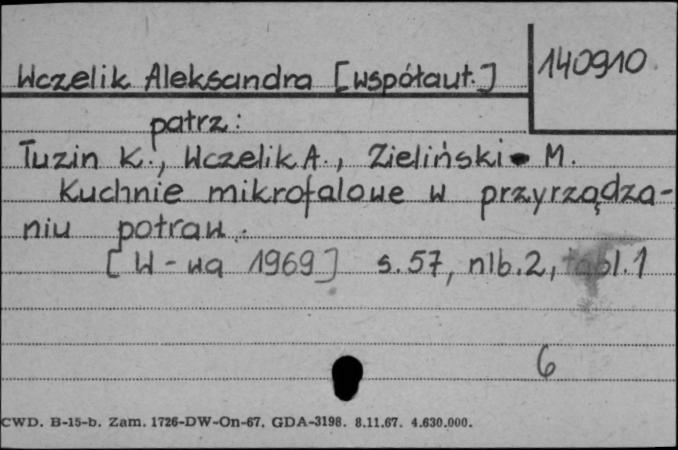 Wczelik Aleksandra [współaut.]
140910
patrz:
Tuzin K., Wczelik A., Zieliński M.
Kuchnie mikrofalowe w przyrządza-
niu potraw.
[W-wa 1969] s. 57, nlb. 2, tabl. 1
6
CWD. B-15-b. Zam. 1726-DW-On-67. GDA-3198. 8.11.67. 4.630.000.